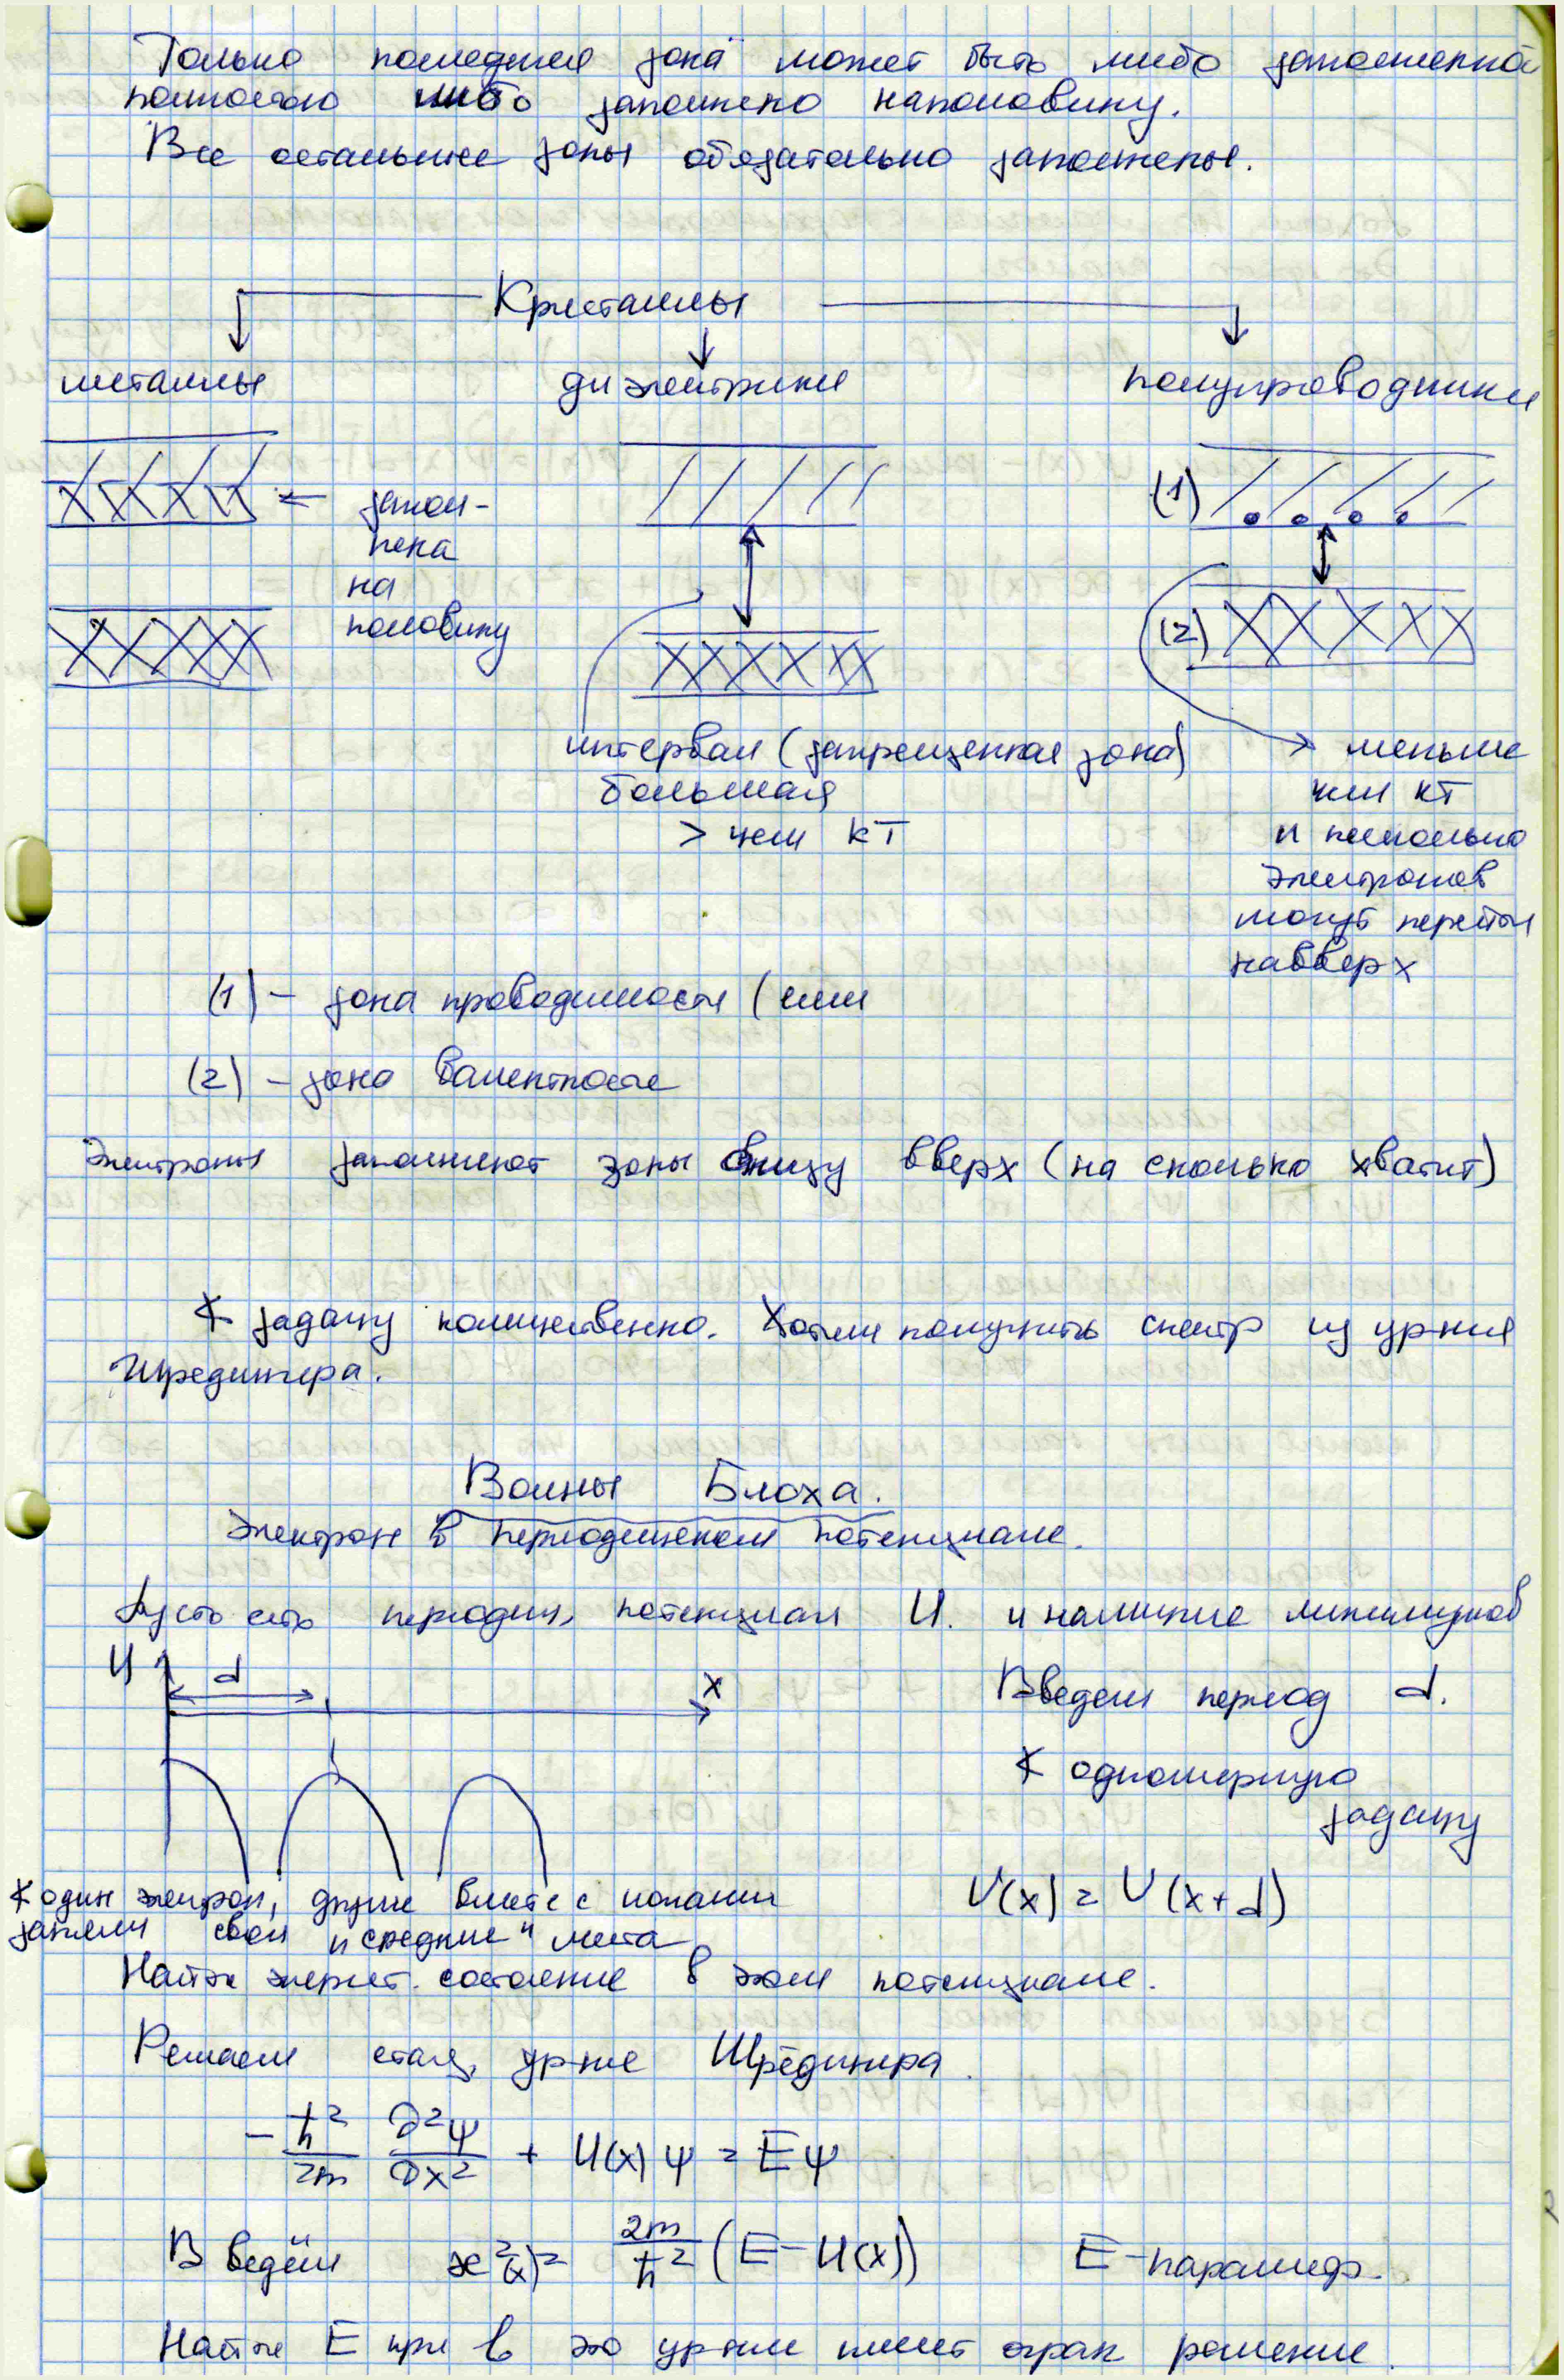 Только последняя зона может быть либо заполненной
полностью либо заполнено наполовину.
Все остальные зоны обязательно заполнены.
Кристаллы
металлы
диэлектрики
полупроводники
← заполн-
нена
на
половину
(1)
(2)
интервал (запрещенная зона)
большая
> чем kT
меньше
чем kT
и несколько
электронов
могут перейти
навверх
(1) – зона проводимости (или
(2) – зона валентности
Электроны заполняют зоны снизу вверх (на сколько хватит)
задачу количественно. Хотим получить спектр из ур-ния
Шредингера.
Волны Блоха.
Электрон в периодическом потенциале.
Пусть есть периодич. потенциал U. и наличие
U
d
x
Введем период d.
одномерную
задачу
U(x) = U(x+d)
один электрон, другие вместе с ионами
заняли свои "средние" места
Найти энергет. состояние в этом потенциале.
Решаем стац. ур-ние Шрёдингера.
-ħ²/2m ∂²ψ/∂x² + U(x)ψ = Eψ
Введём æ²(x) = 2m/ħ² (E - U(x)) E – параметр.
Найти E при это ур-ние имеет огран решение.